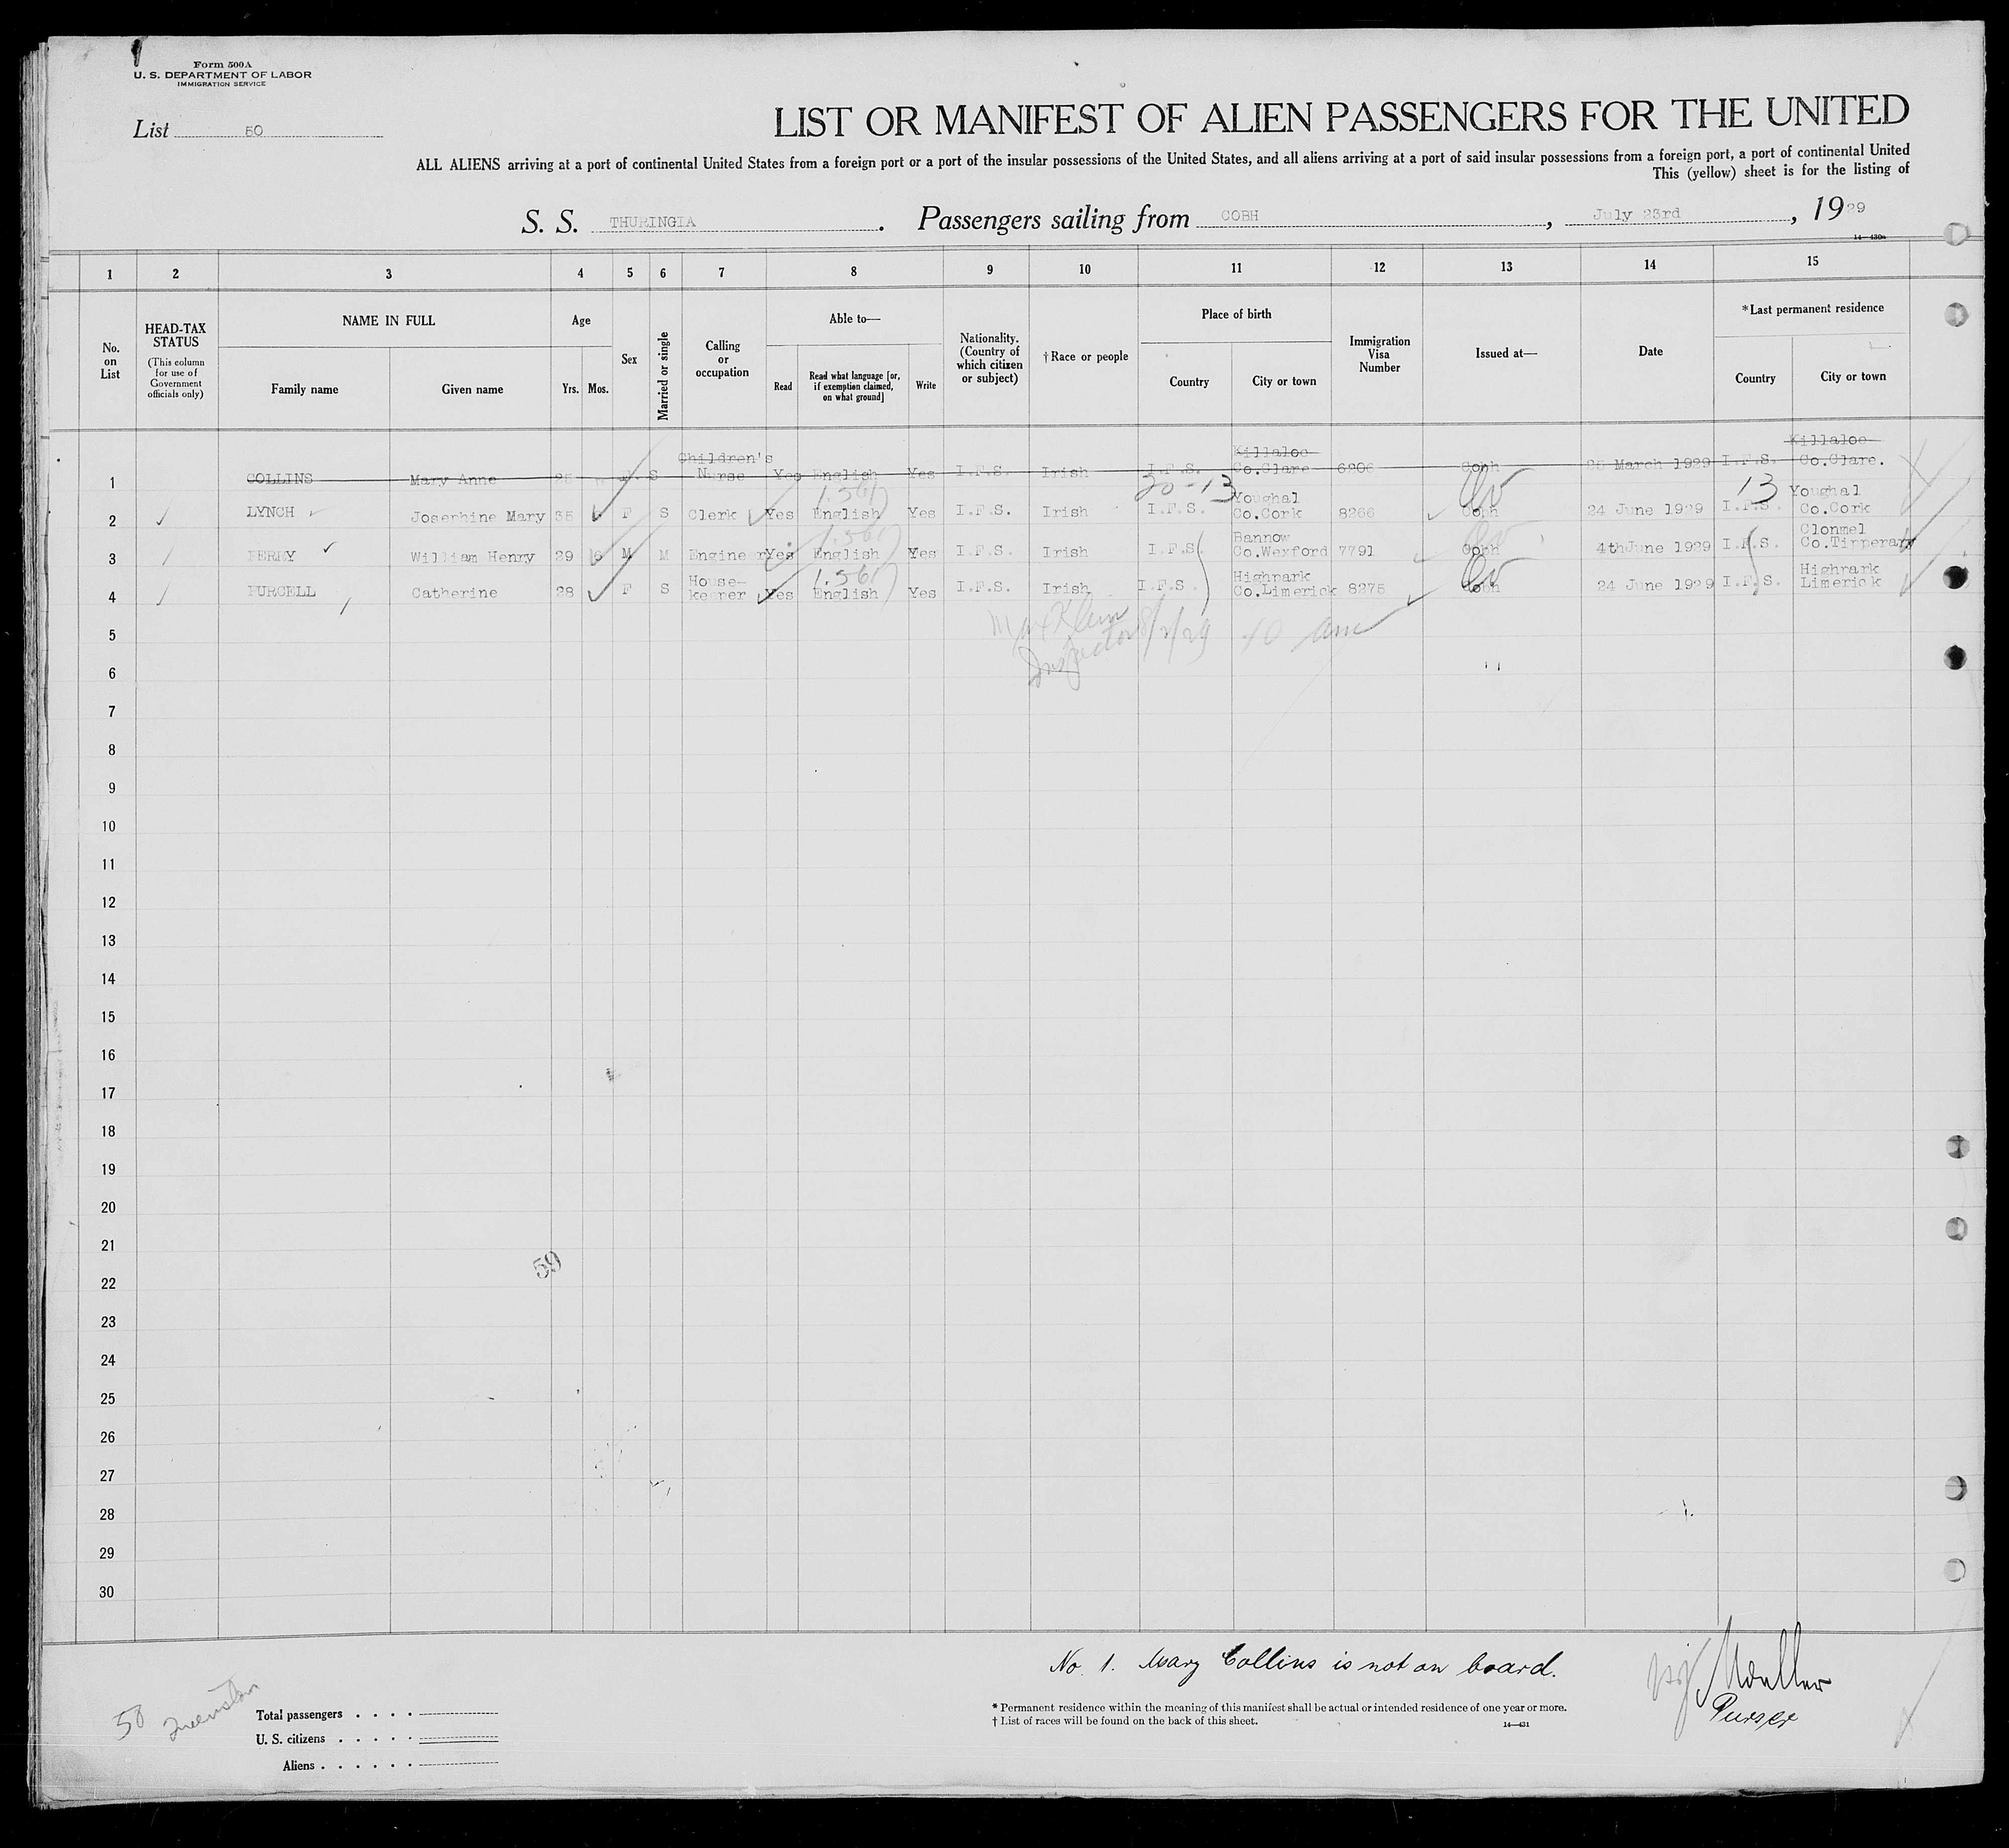 Form 500A
U. S. DEPARTMENT OF LABOR
IMMIGRATION SERVICE
List 50
LIST OR MANIFEST OF ALIEN PASSENGERS FOR THE UNITED
ALL ALIENS arriving at a port of continental United States from a foreign port or a port of the insular possessions of the United States, and all aliens arriving at a port of said insular possessions from a foreign port, a port of continental United
This (yellow) sheet is for the listing of
S. S. THURINGIA . Passengers sailing from COBH , July 23rd , 1929
14—430a
1 2 3 4 5 6 7 8 9 10 11 12 13 14 15
No. on List
HEAD-TAX STATUS
(This column for use of Government officials only)
NAME IN FULL
Family name
Given name
Age
Yrs. Mos.
Sex
Married or single
Calling or occupation
Able to—
Read
Read what language [or, if exemption claimed, on what ground]
Write
Nationality. (Country of which citizen or subject)
† Race or people
Place of birth
Country
City or town
Immigration Visa Number
Issued at—
Date
* Last permanent residence
Country
City or town
1 COLLINS Mary Anne S Children's Nurse Yes English Yes I.F.S. Irish I.F.S. Killaloe Co.Clare 6206 Cobh 25 March 1929 I.F.S. Killaloe Co.Clare.
20-13 13
2 LYNCH Josephine Mary 35 F S Clerk Yes English Yes I.F.S. Irish I.F.S. Youghal Co.Cork 8266 Cobh 24 June 1929 I.F.S. Youghal Co.Cork
3 PERRY William Henry 29 6 M M Engineer Yes English Yes I.F.S. Irish I.F.S. Bannow Co.Wexford 7791 Cobh 4thJune 1929 I.F.S. Clonmel Co.Tipperary
4 PURCELL Catherine 28 F S House-keeper Yes English Yes I.F.S. Irish I.F.S. Highpark Co.Limerick 8275 Cobh 24 June 1929 I.F.S. Highpark Limerick
5 Klein
Inspector 8/2/29 10 am
6
7
8
9
10
11
12
13
14
15
16
17
18
19
20
21
59
22
23
24
25
26
27
28
29
30
No. 1. Mary Collins is not on board.
Moeller
Purser
50 Queenstown
Total passengers
U. S. citizens
Aliens
* Permanent residence within the meaning of this manifest shall be actual or intended residence of one year or more.
† List of races will be found on the back of this sheet.
14—431